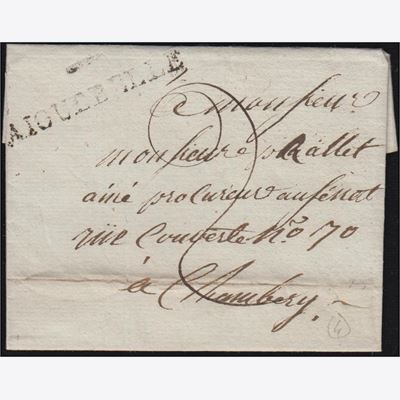 AIGUEBELLE
a monsieur
monsieur Rallet
ainé procureur au sénat
rüe Couverte No. 70
à Chambery
4